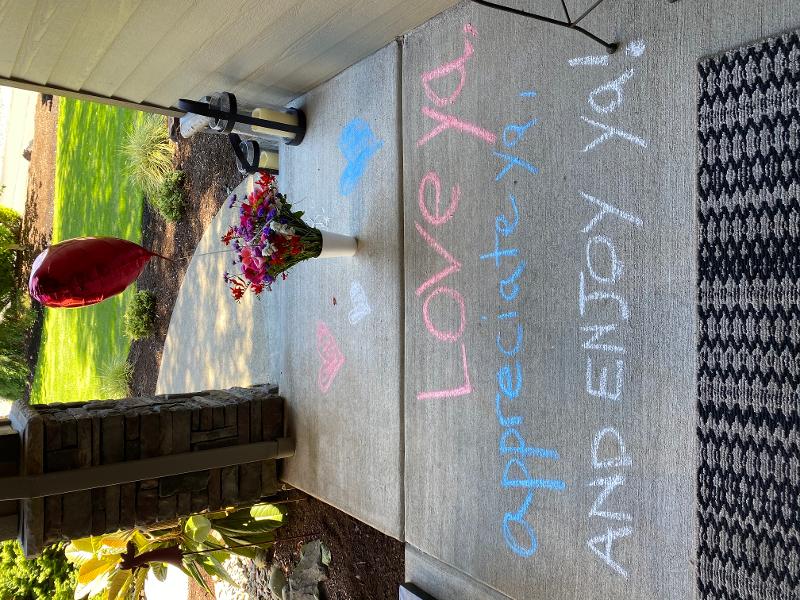 LOVE ya,
appreciate ya,
AND ENJOY Ya!